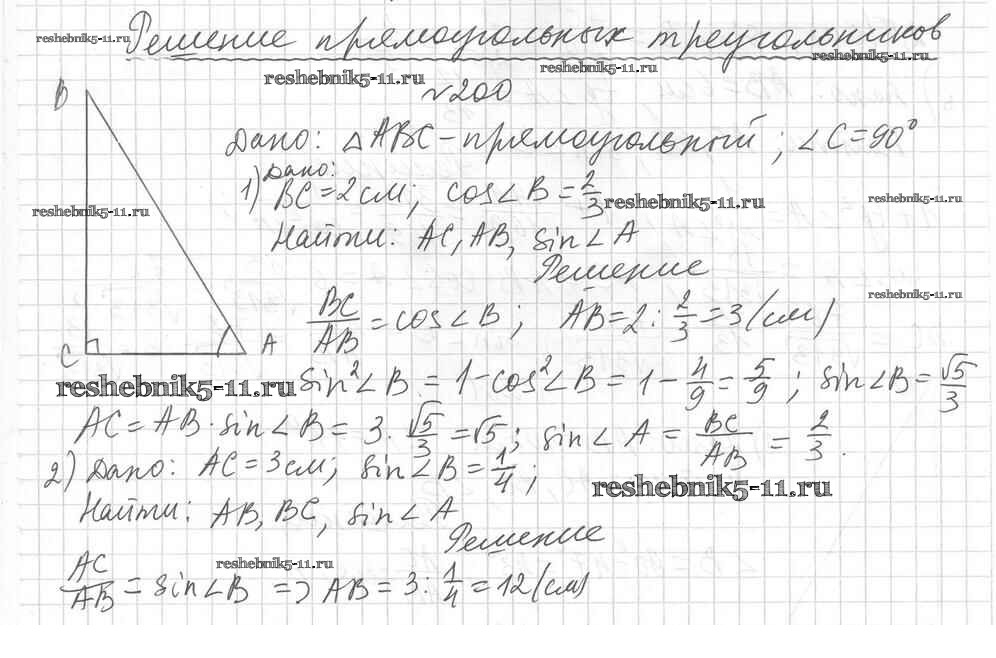 Решение прямоугольных треугольников
reshebnik5-11.ru
reshebnik5-11.ru
reshebnik5-11.ru
reshebnik5-11.ru
№200
B
Дано: △ABC - прямоугольный; ∠C=90°
1) Дано:
BC=2см; cos∠B=2/3
reshebnik5-11.ru
reshebnik5-11.ru
reshebnik5-11.ru
Найти: AC, AB, sin∠A
Решение
reshebnik5-11.ru
BC/AB = cos∠B; AB=2:2/3=3(см)
C A
reshebnik5-11.ru
sin²∠B = 1-cos²∠B = 1-4/9=5/9; sin∠B=√5/3
AC=AB·sin∠B=3·√5/3=√5; sin∠A=BC/AB=2/3.
2) Дано: AC=3см; sin∠B=1/4;
reshebnik5-11.ru
Найти: AB, BC, sin∠A
Решение
reshebnik5-11.ru
AC/AB=sin∠B => AB=3:1/4=12(см)